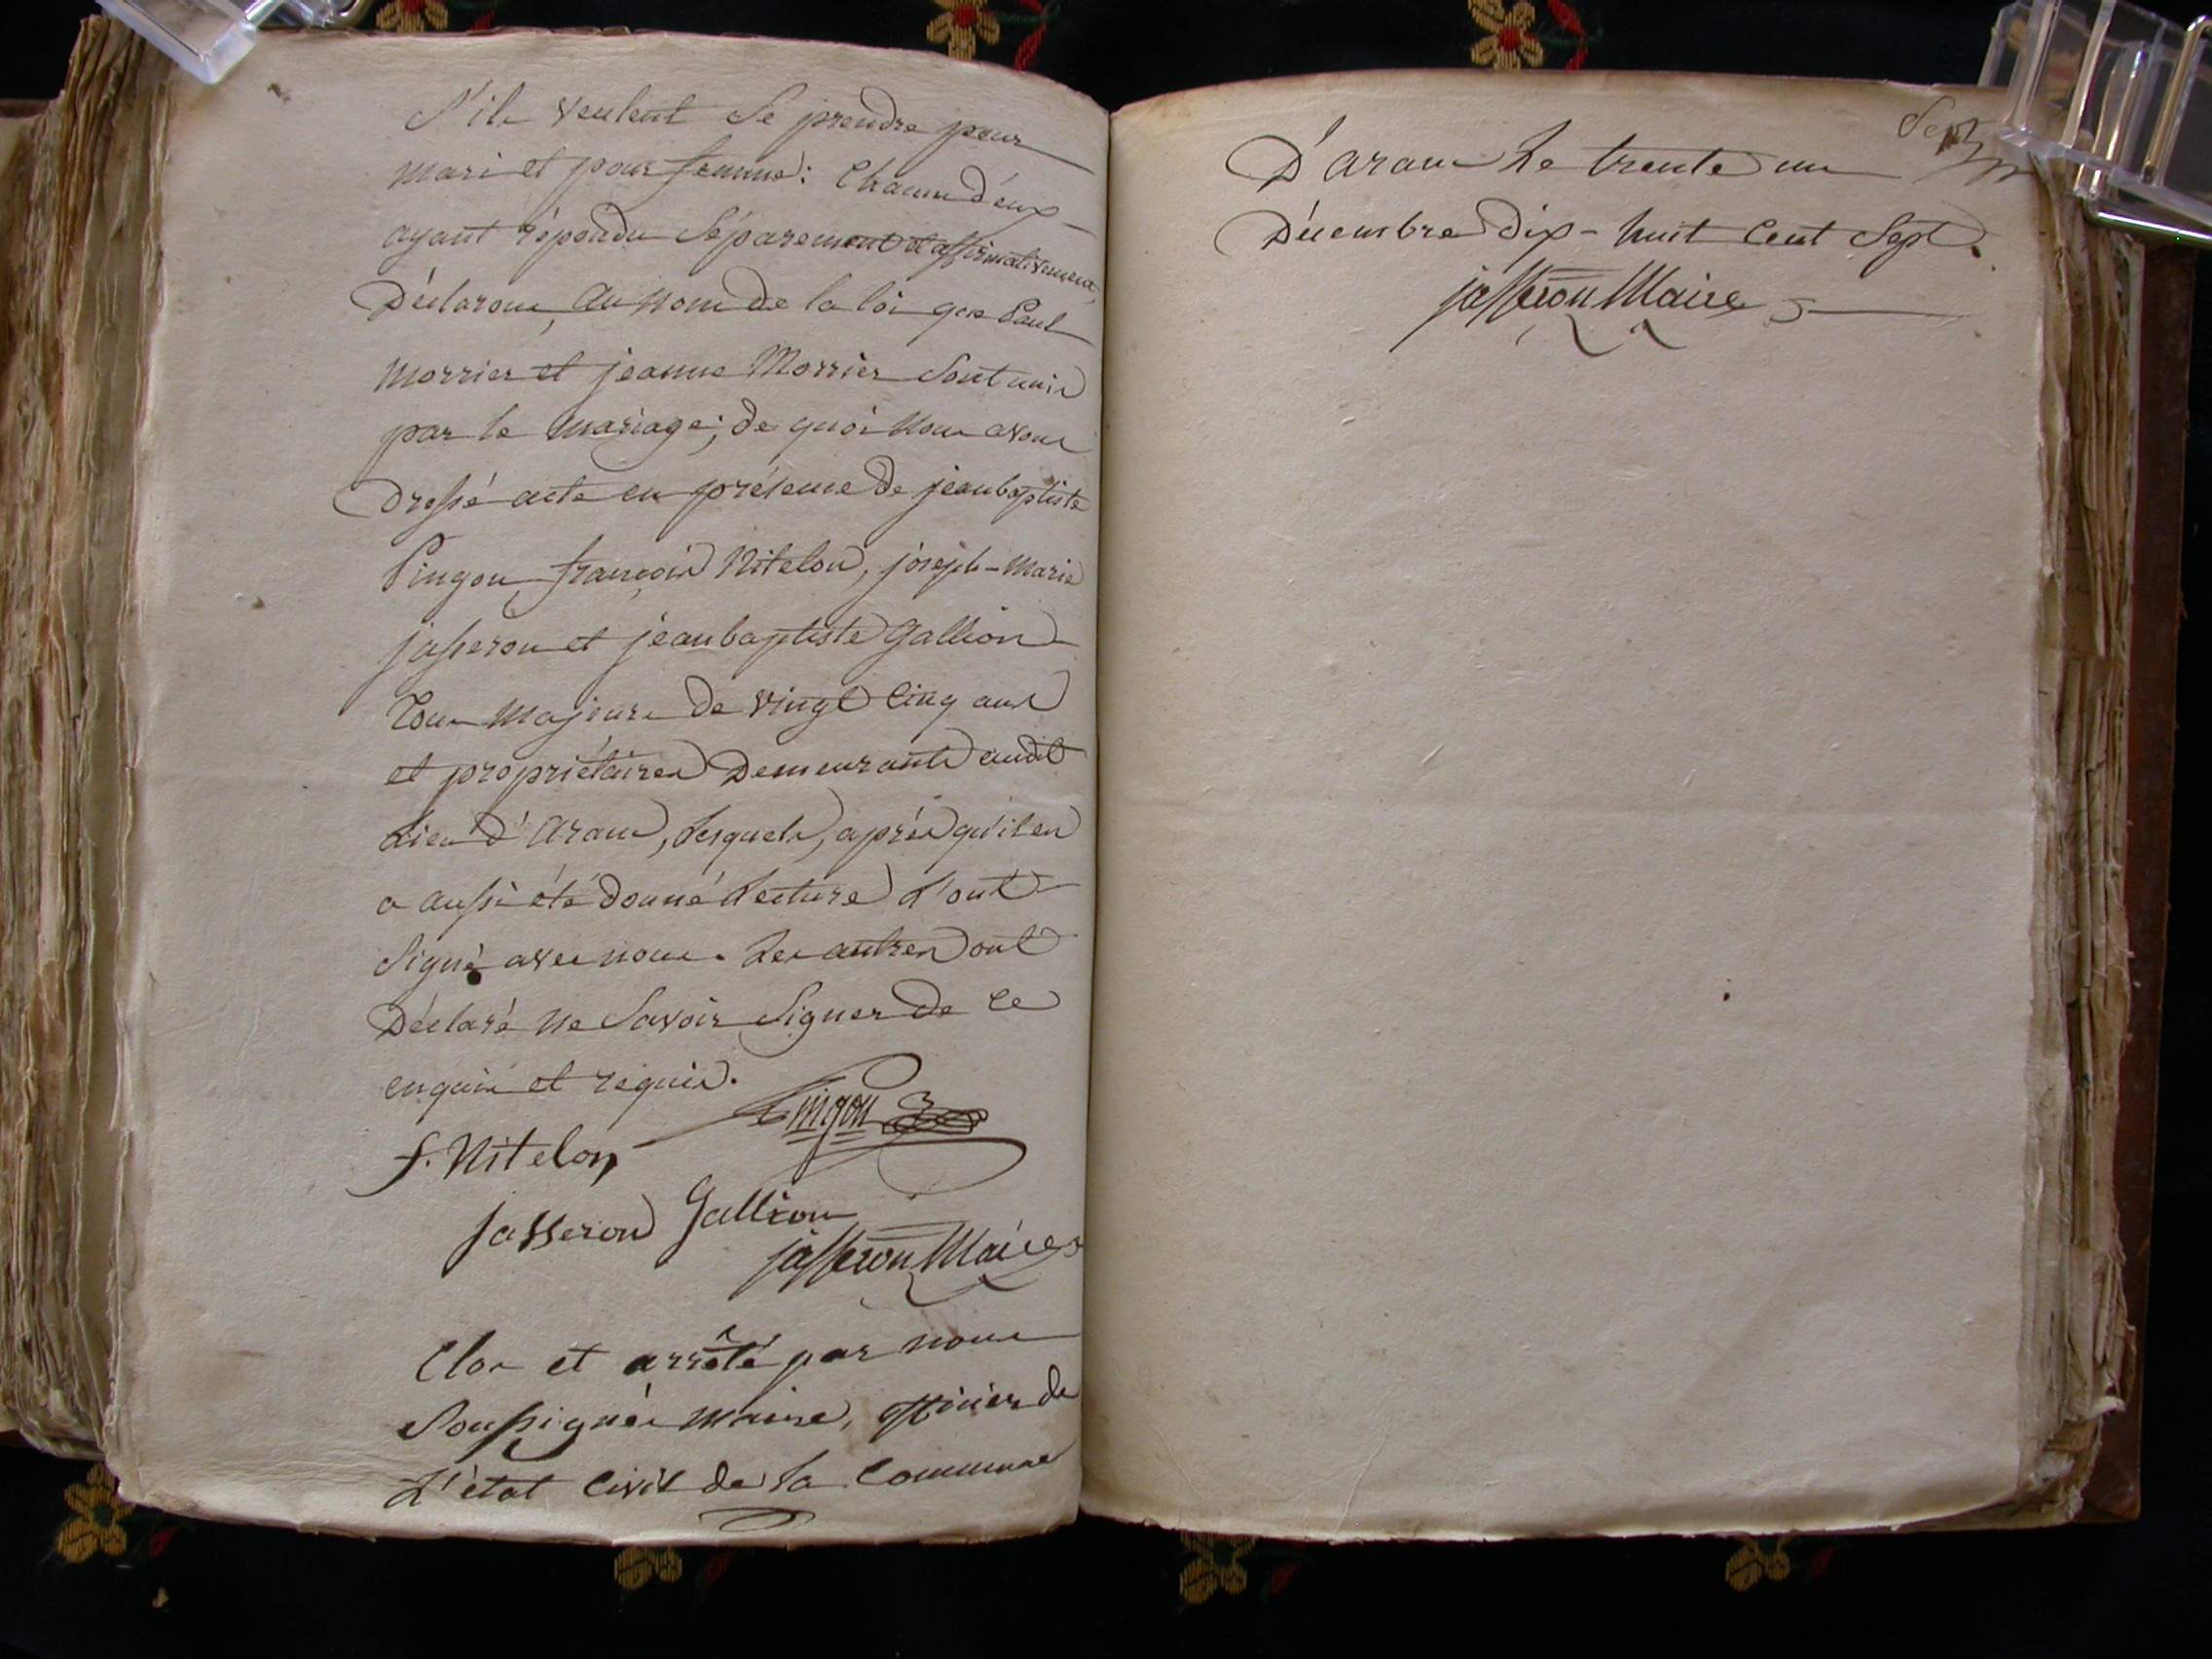 S'ils veulent se prendre pour
mari et pour femme: Chacun d'eux
ayant répondu séparement et affirmativement,
Déclarons, au nom de la loi que Paul
morrier et jeanne Morrier sont unis
par le mariage; de quoi nous avons
dressé acte en présence de jean baptiste
Pingon, françois Nitelon, joseph-Marie
jasseron et jean baptiste Gallion
Tous majeurs de vingt cinq ans
et propriétaires demeurants audit
Lieu d'aranc, Lesquels, après qu'il en
a aussi été donné Lecture L'ont
signé avec nous. Les autres ont
Déclaré ne savoir signer de ce
enquis et requis.
Pingon
f. Nitelon
jasseron Gallion
jasseron Maire
Clos et arrêté par nous
soussigné maire, officier de
L'état Civil de la Commune
Sept
D'aranc Le trente un
Décembre dix-huit Cent Sept.
jasseron Maire